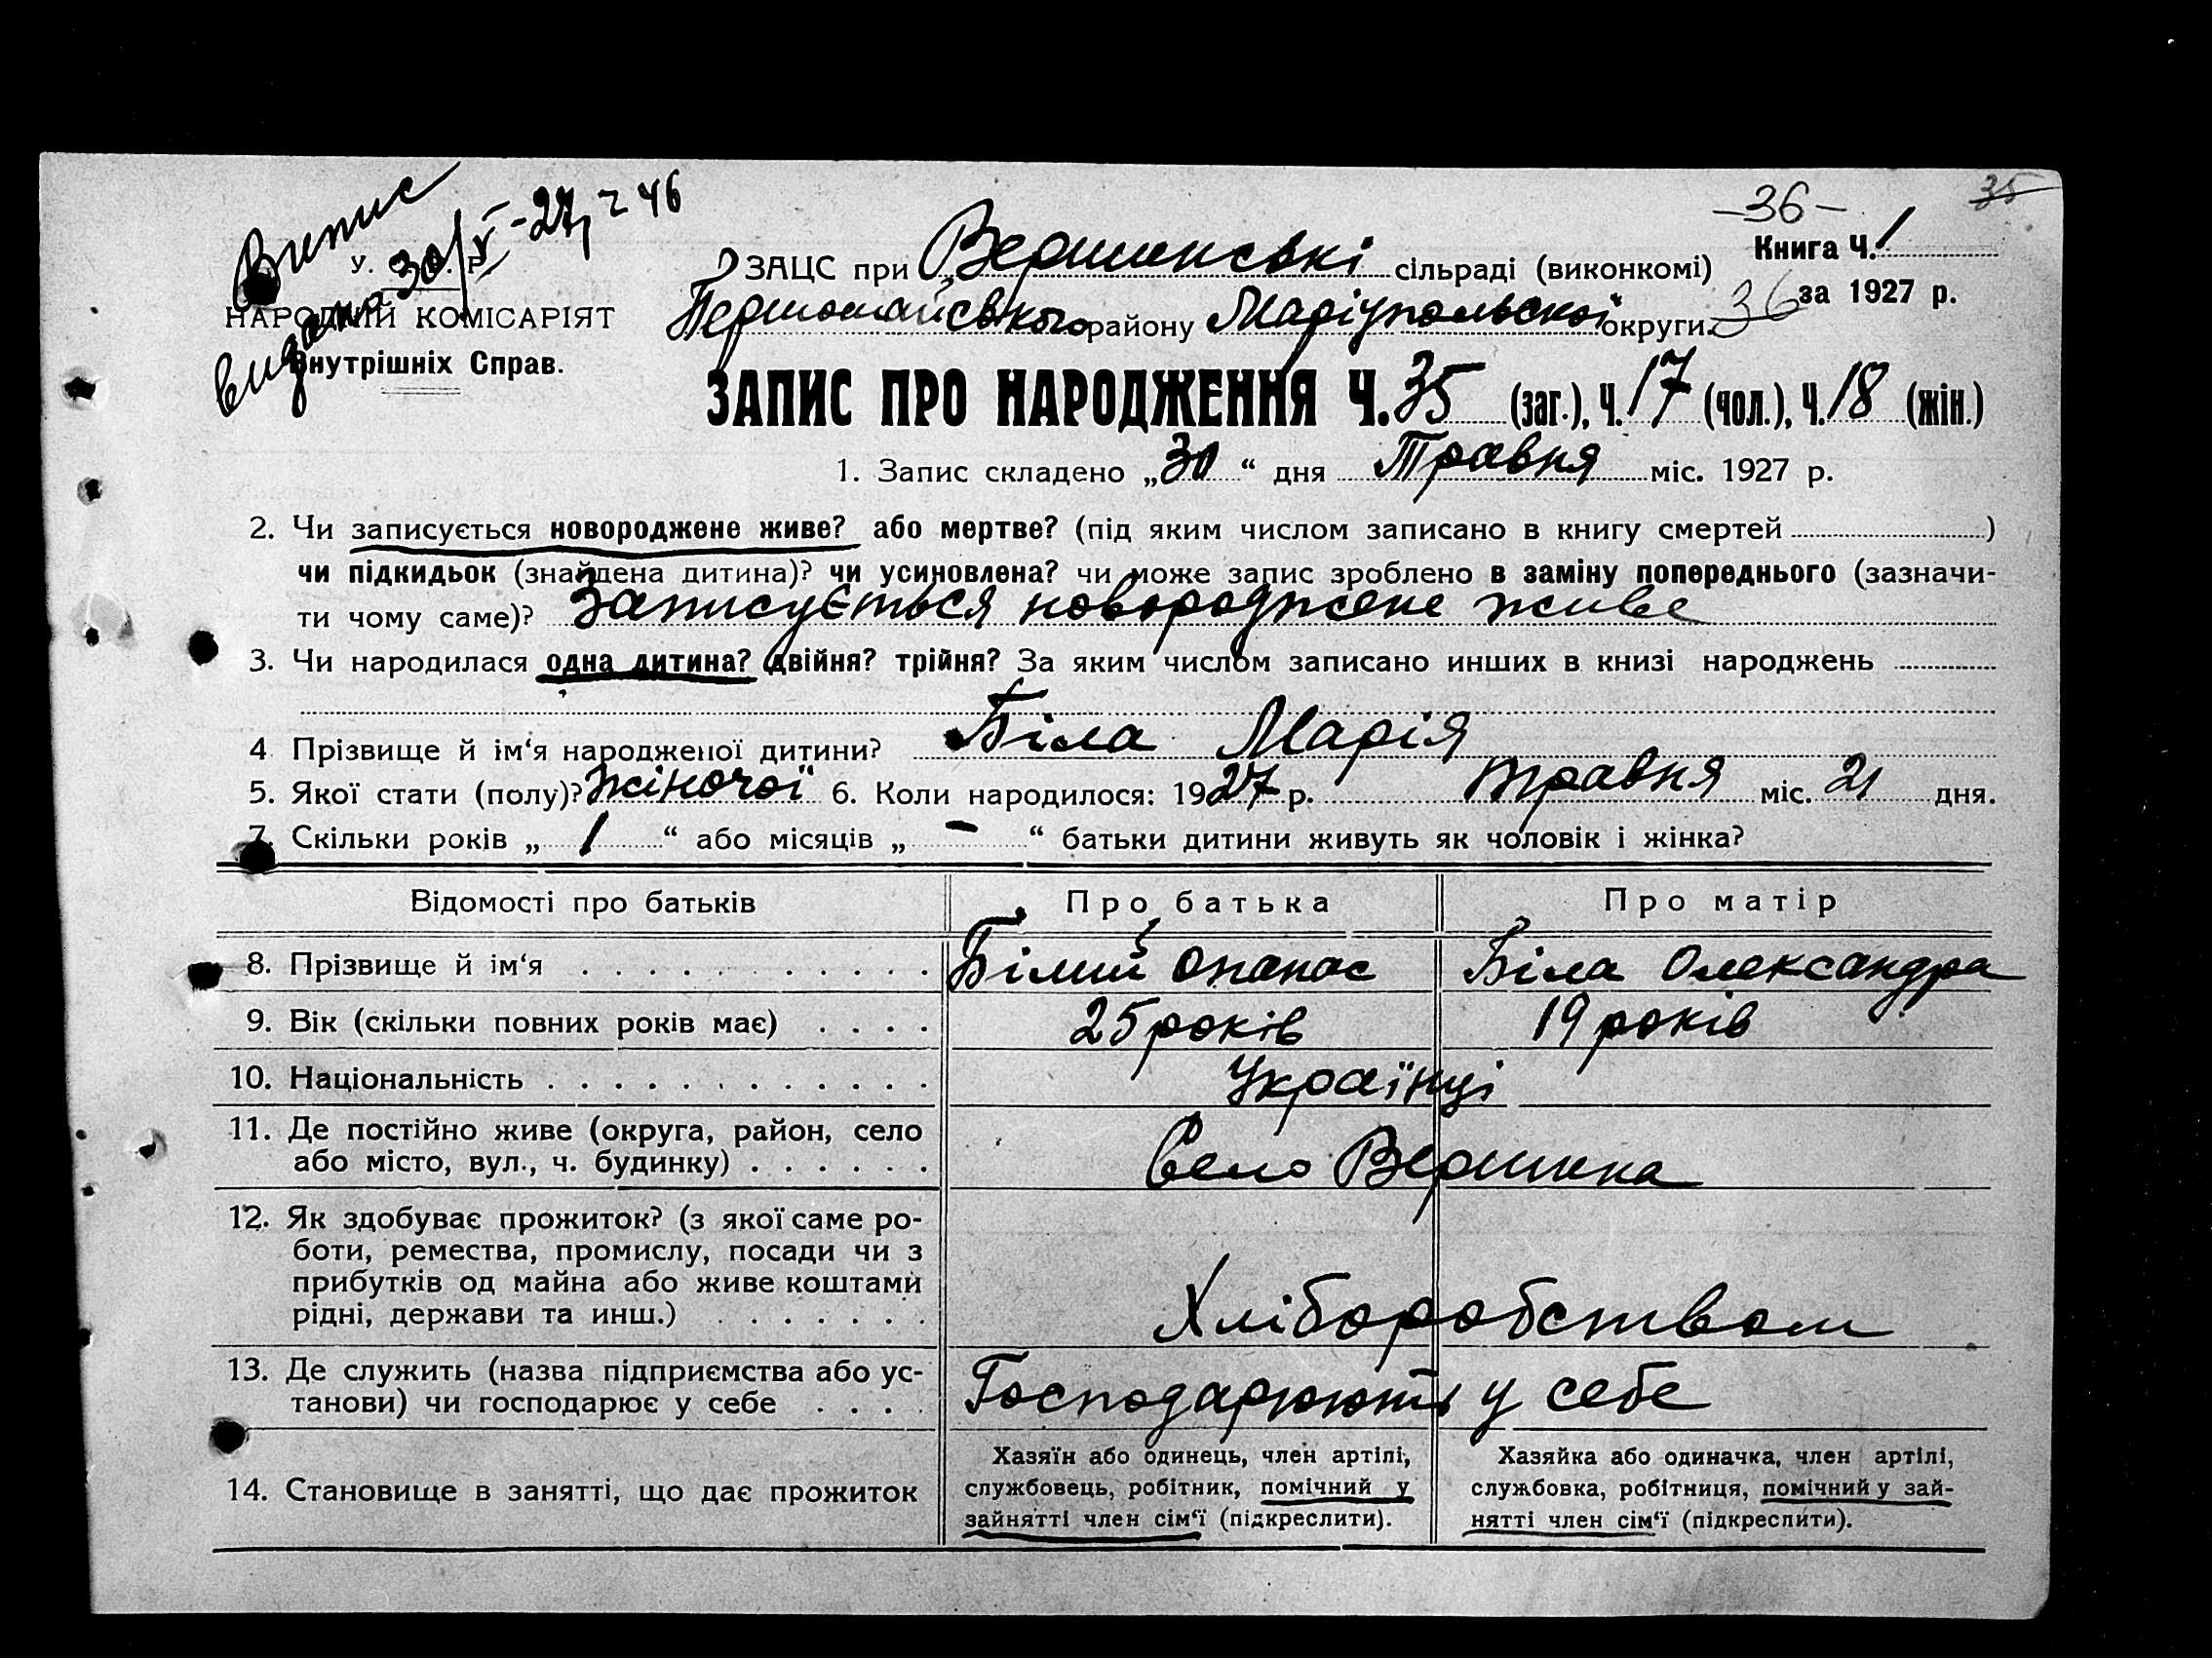 Випис
видано 30/V-27, ч 46
-36-
35
Книга Ч. 1
У. С. Р. Р.
ЗАЦС при Вершинські сільраді (виконкомі)
за 1927 р.
НАРОДНІЙ КОМІСАРІЯТ
Першомайського району Маріупольскої округи. 36
Внутрішніх Справ.
ЗАПИС ПРО НАРОДЖЕННЯ Ч. 35 (заг.), Ч. 17 (чол.), Ч. 18 (жін.)
1. Запис складено „30“ дня Травня міс. 1927 р.
2. Чи записується новороджене живе? або мертве? (під яким числом записано в книгу смертей )
чи підкидьок (знайдена дитина)? чи усиновлена? чи може запис зроблено в заміну попереднього (зазначи-
ти чому саме)? Записуеться новороджене живе
3. Чи народилася одна дитина? двійня? трійня? За яким числом записано инших в книзі народжень
4. Прізвище й ім‘я народженої дитини? Біла Марія
5. Якої стати (полу)? жіночої 6. Коли народилося: 1927 р. травня міс. 21 дня.
7. Скільки років „ 1 “ або місяців „ - “ батьки дитини живуть як чоловік і жінка?
Відомості про батьків Про батька Про матір
8. Прізвище й ім‘я . . . . . . . . . . . Білий Опанас Біла Олександра
9. Вік (скільки повних років має) . . . . 25 років 19 років
10. Національність . . . . . . . . . . . . Українці
11. Де постійно живе (округа, район, село
або місто, вул., ч. будинку) . . . . . . Село Вершина
12. Як здобуває прожиток? (з якої саме ро-
боти, ремества, промислу, посади чи з
прибутків од майна або живе коштами
рідні, держави та инш.) . . . . . . . Хліборобством
13. Де служить (назва підприємства або ус-
танови) чи господарює у себе . . . . Господарюють у себе
14. Становище в занятті, що дає прожиток
Хазяїн або одинець, член артілі,
службовець, робітник, помічний у
зайнятті член сім‘ї (підкреслити).
Хазяйка або одиначка, член артілі,
службовка, робітниця, помічний у зай-
нятті член сім‘ї (підкреслити).